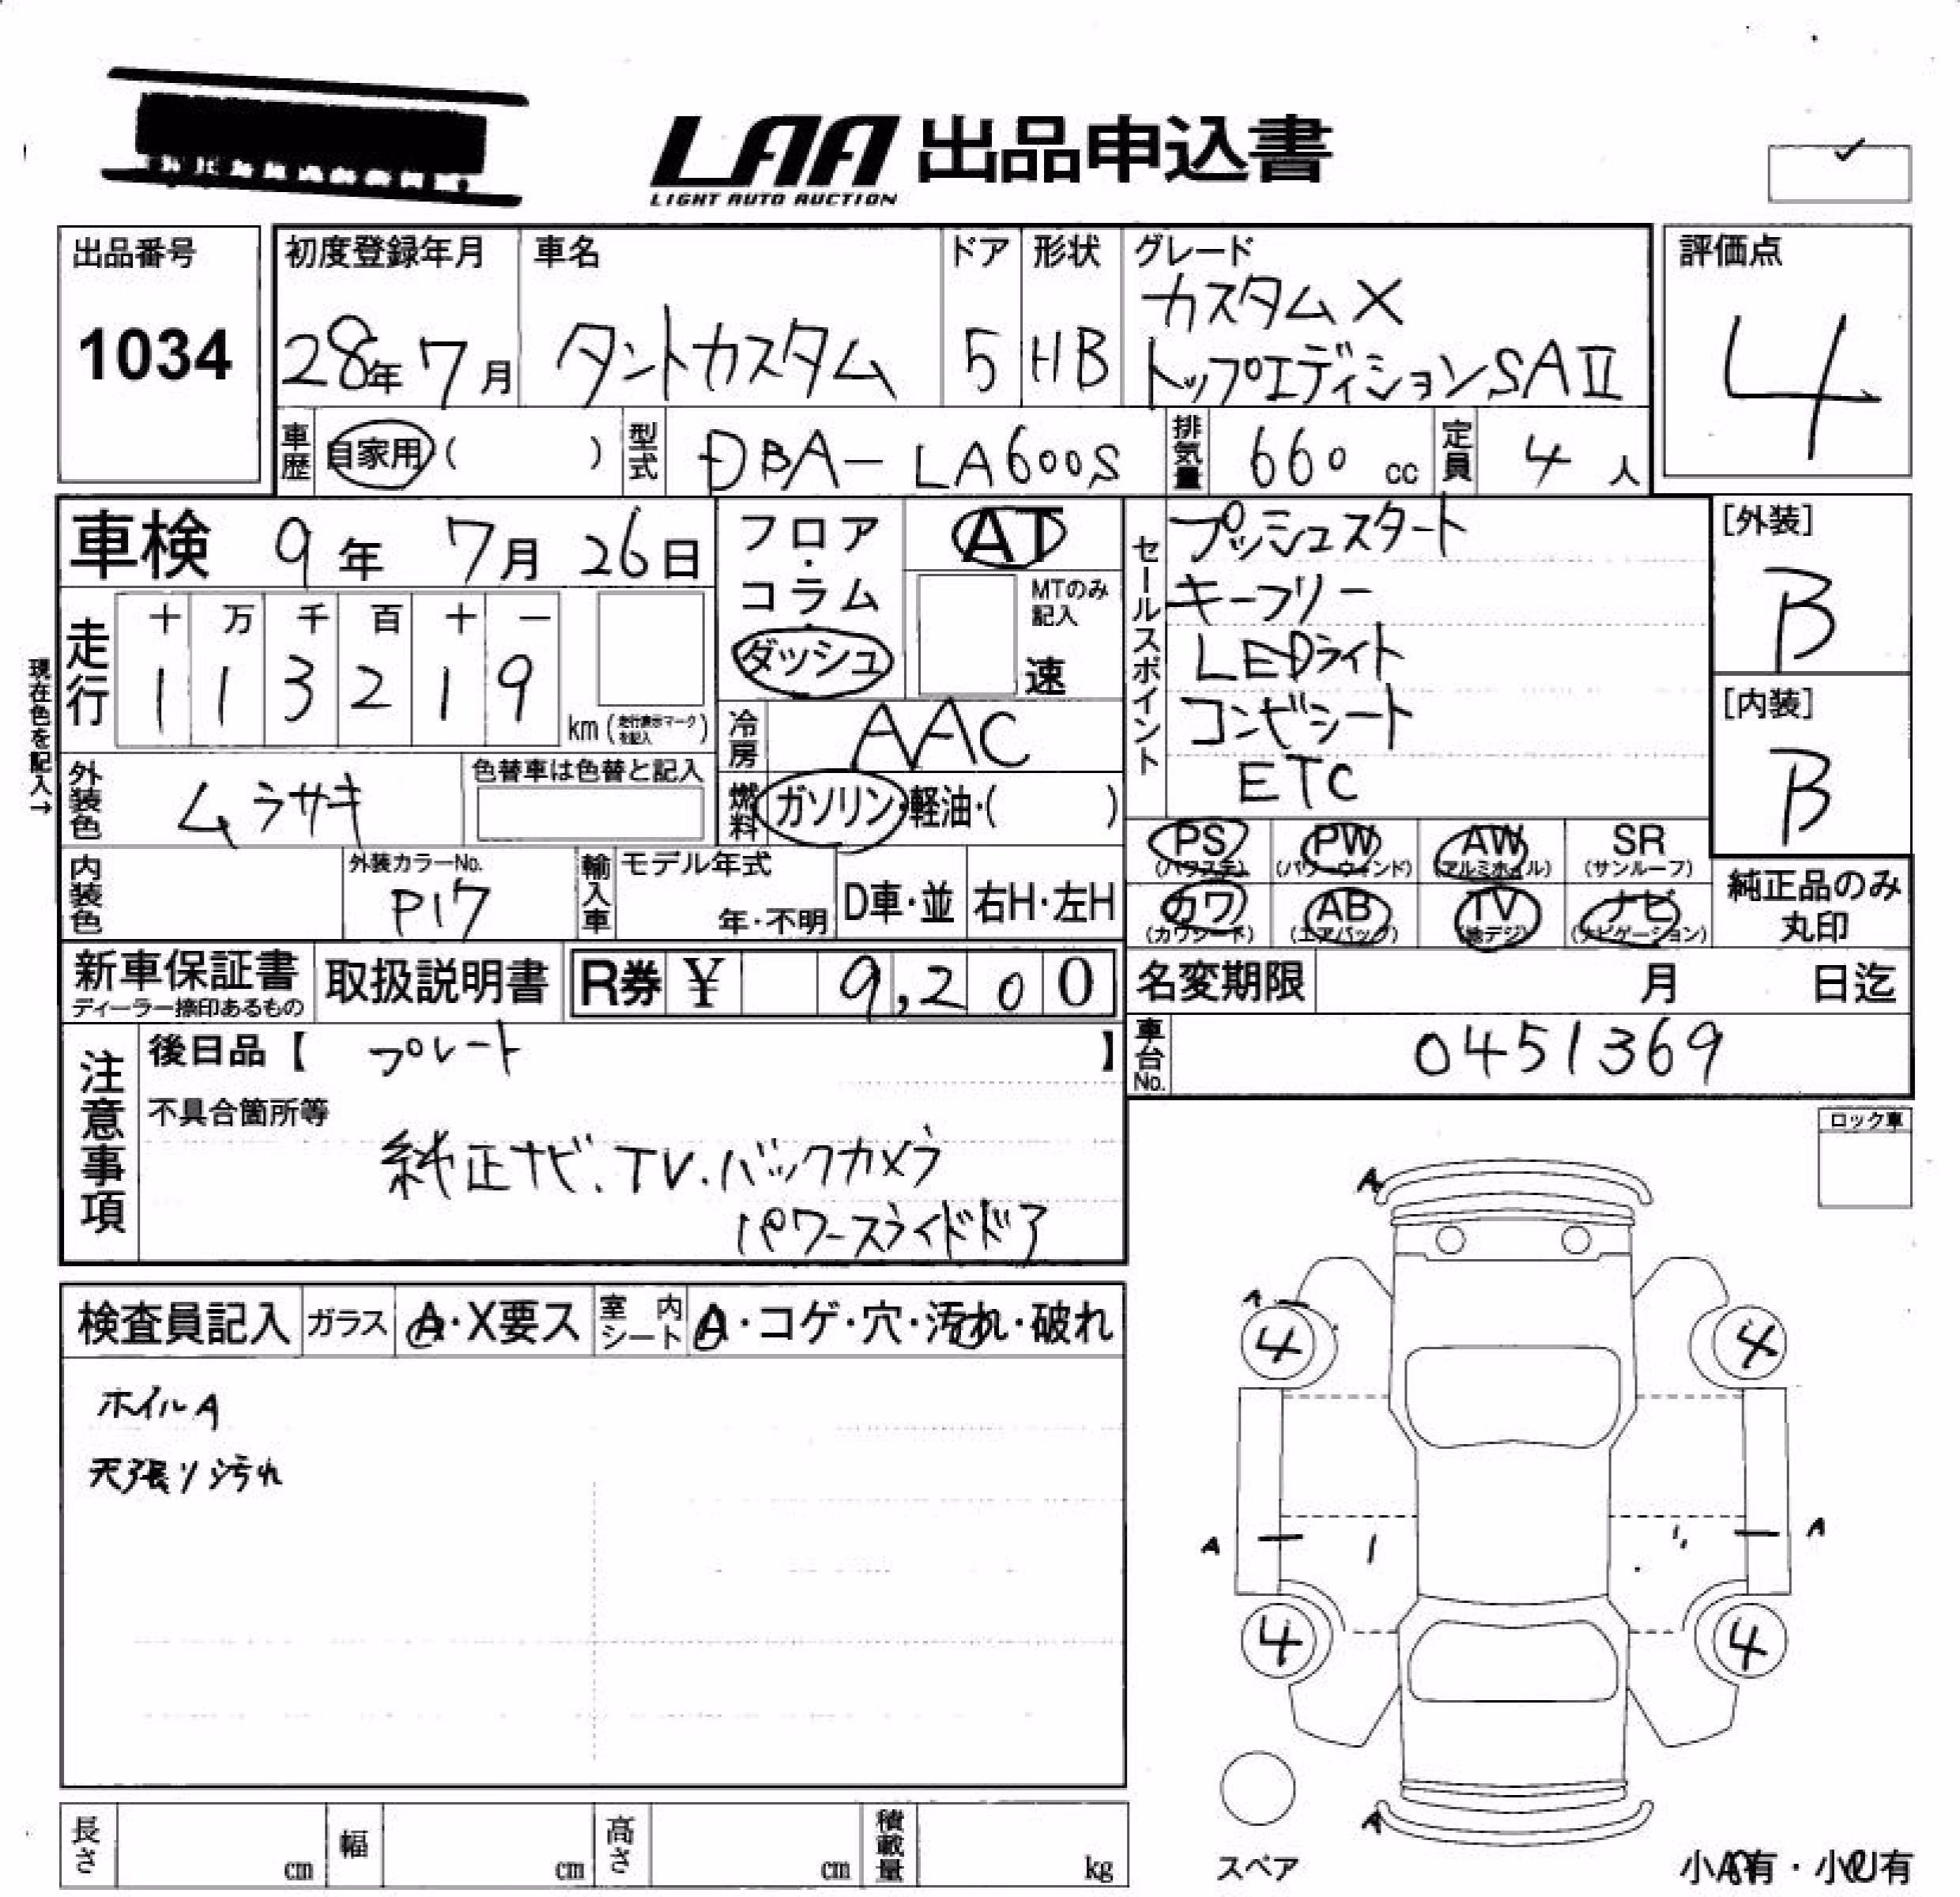 LAA 出品申込書
LIGHT AUTO AUCTION
出品番号
1034
初度登録年月
28年 7月
車名
タントカスタム
ドア
5
形状
HB
グレード
カスタムX
トップエディションSAⅡ
評価点
4
車歴 自家用 ( )
型式 DBA-LA600S
排気量 660 cc
定員 4 人
車検 9年 7月 26日
現在色を記入→
走行
十 万 千 百 十 一
1 1 3 2 1 9
km (走行表示マークを記入)
フロア・コラム・ダッシュ
AT
MTのみ記入
速
冷房 AAC
燃料 ガソリン・軽油・( )
外装色 ムラサキ
色替車は色替と記入
内装色
外装カラーNo.
P17
輸入車
モデル年式
年・不明
D車・並
右H・左H
セールスポイント
プッシュスタート
キーフリー
LEDライト
コンビシート
ETC
[外装]
B
[内装]
B
PS (パワステ)
PW (パワーウィンド)
AW (アルミホイル)
SR (サンルーフ)
カワ (カワシート)
AB (エアバック)
TV (地デジ)
ナビ (ナビゲーション)
純正品のみ
丸印
新車保証書
ディーラー捺印あるもの
取扱説明書
R券 ¥ 9,200
名変期限 月 日迄
車台No. 0451369
注意事項
後日品【 プレート 】
不具合箇所等
純正ナビ.TV.バックカメラ
パワースライドドア
ロック車
検査員記入
ガラス A・X要ス
室内シート A・コゲ・穴・汚れ・破れ
ホイルA
天張り汚れ
A
A
4
4
A
A
4
4
A
スペア
小A有・小U有
長さ cm
幅 cm
高さ cm
積載量 kg